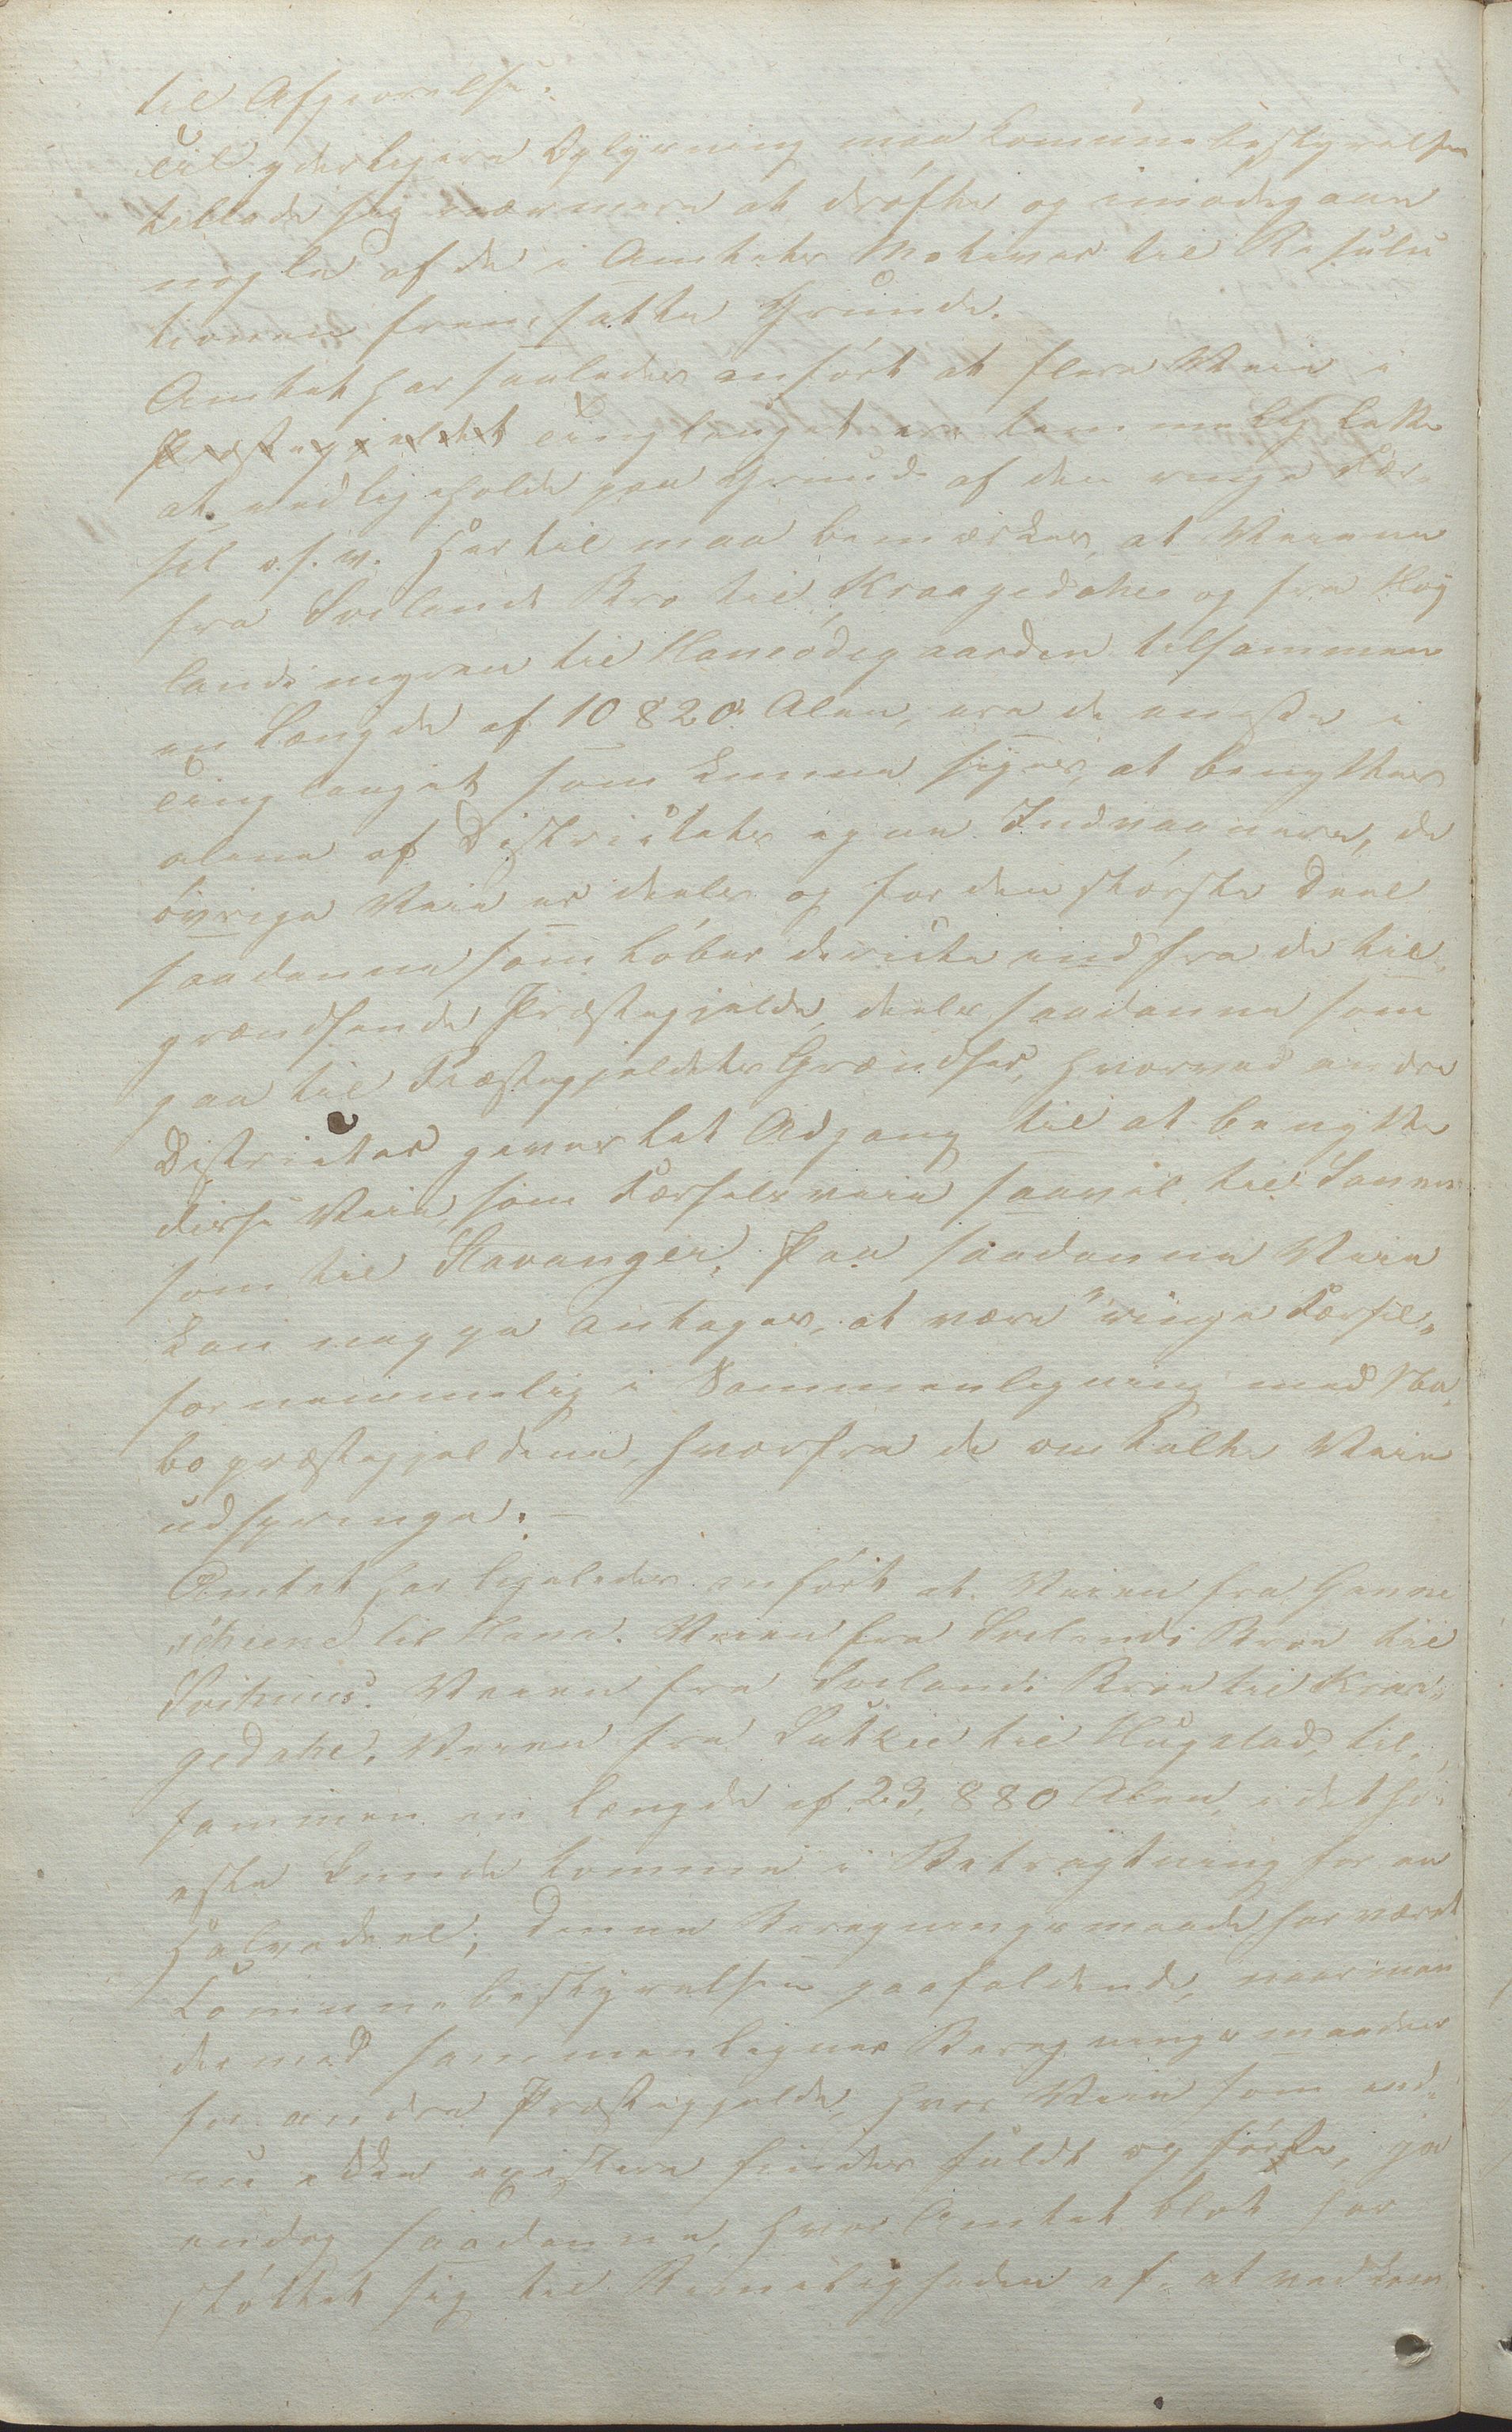 til Afgiørelse.
Til yderligere Oplysning maa Komunebestyrelsen
tillade sig nærmere at drøfte og imødegaae
nogle af de i Amtets Motiver til Resolu
tionen fremsatte Grunde.
Amtet har saaledes anført at flere Veie i
Præstegjeldet Tinglauget ere temmelig lette
at vedligeholde paa Grund af den ringe Fær-
sel o.s.v. Hertil maa bemærkes, at Veiene
fra Soelands Bro til Kraagedahl og fra Høy
lands myren til Hanaødegaarden tilsammen
en Længde af 10820 Alen, ere de eneste i
Tinglauget som kunne siges at benyttes
alene af Districtets egne Indvaanere, de
øvrige Veie er deels og for den største Deel
saadanne som løber directe ind fra de til
grændsende Præstegjelde, deels saadanne som
gaa til Præstegjeldets Grændser, hvorved andre
Districter gives let Adgang til at benytte
disse Veie som Færselsveie saavel til Sannes
som til Stavanger. Paa saadanne Veie
kan neppe antages, at være "ringe Færsel"
fornemmelig i Sammenligning med Na-
bopræstegjeldene, hvorfra de omtalte Veie
udspringe. —
Amtet har ligeledes anført at Veien fra Ganne
til Hana. Veien fra Soelands Broe til
Svihuus. Veien fra Soelands Broe til Kraa-
gedahl. Veien fra til Hugstad, til-
sammen en Længde af 23,880 Alen, i det høi
este kunde komme i Betragtning for en
Halvedeel; denne Beregningsmaade har været
Komunebestyrelsen paafaldende, naar man
dermed sammenligner Beregningsmaaden
for andre Præstegjelde, hvor Veie som end-
nu ikke existere findes fuldt opførte, ja
endog saadanne, hvor Amtet blot har
støttet sig til Rimeligheden af at vedkom